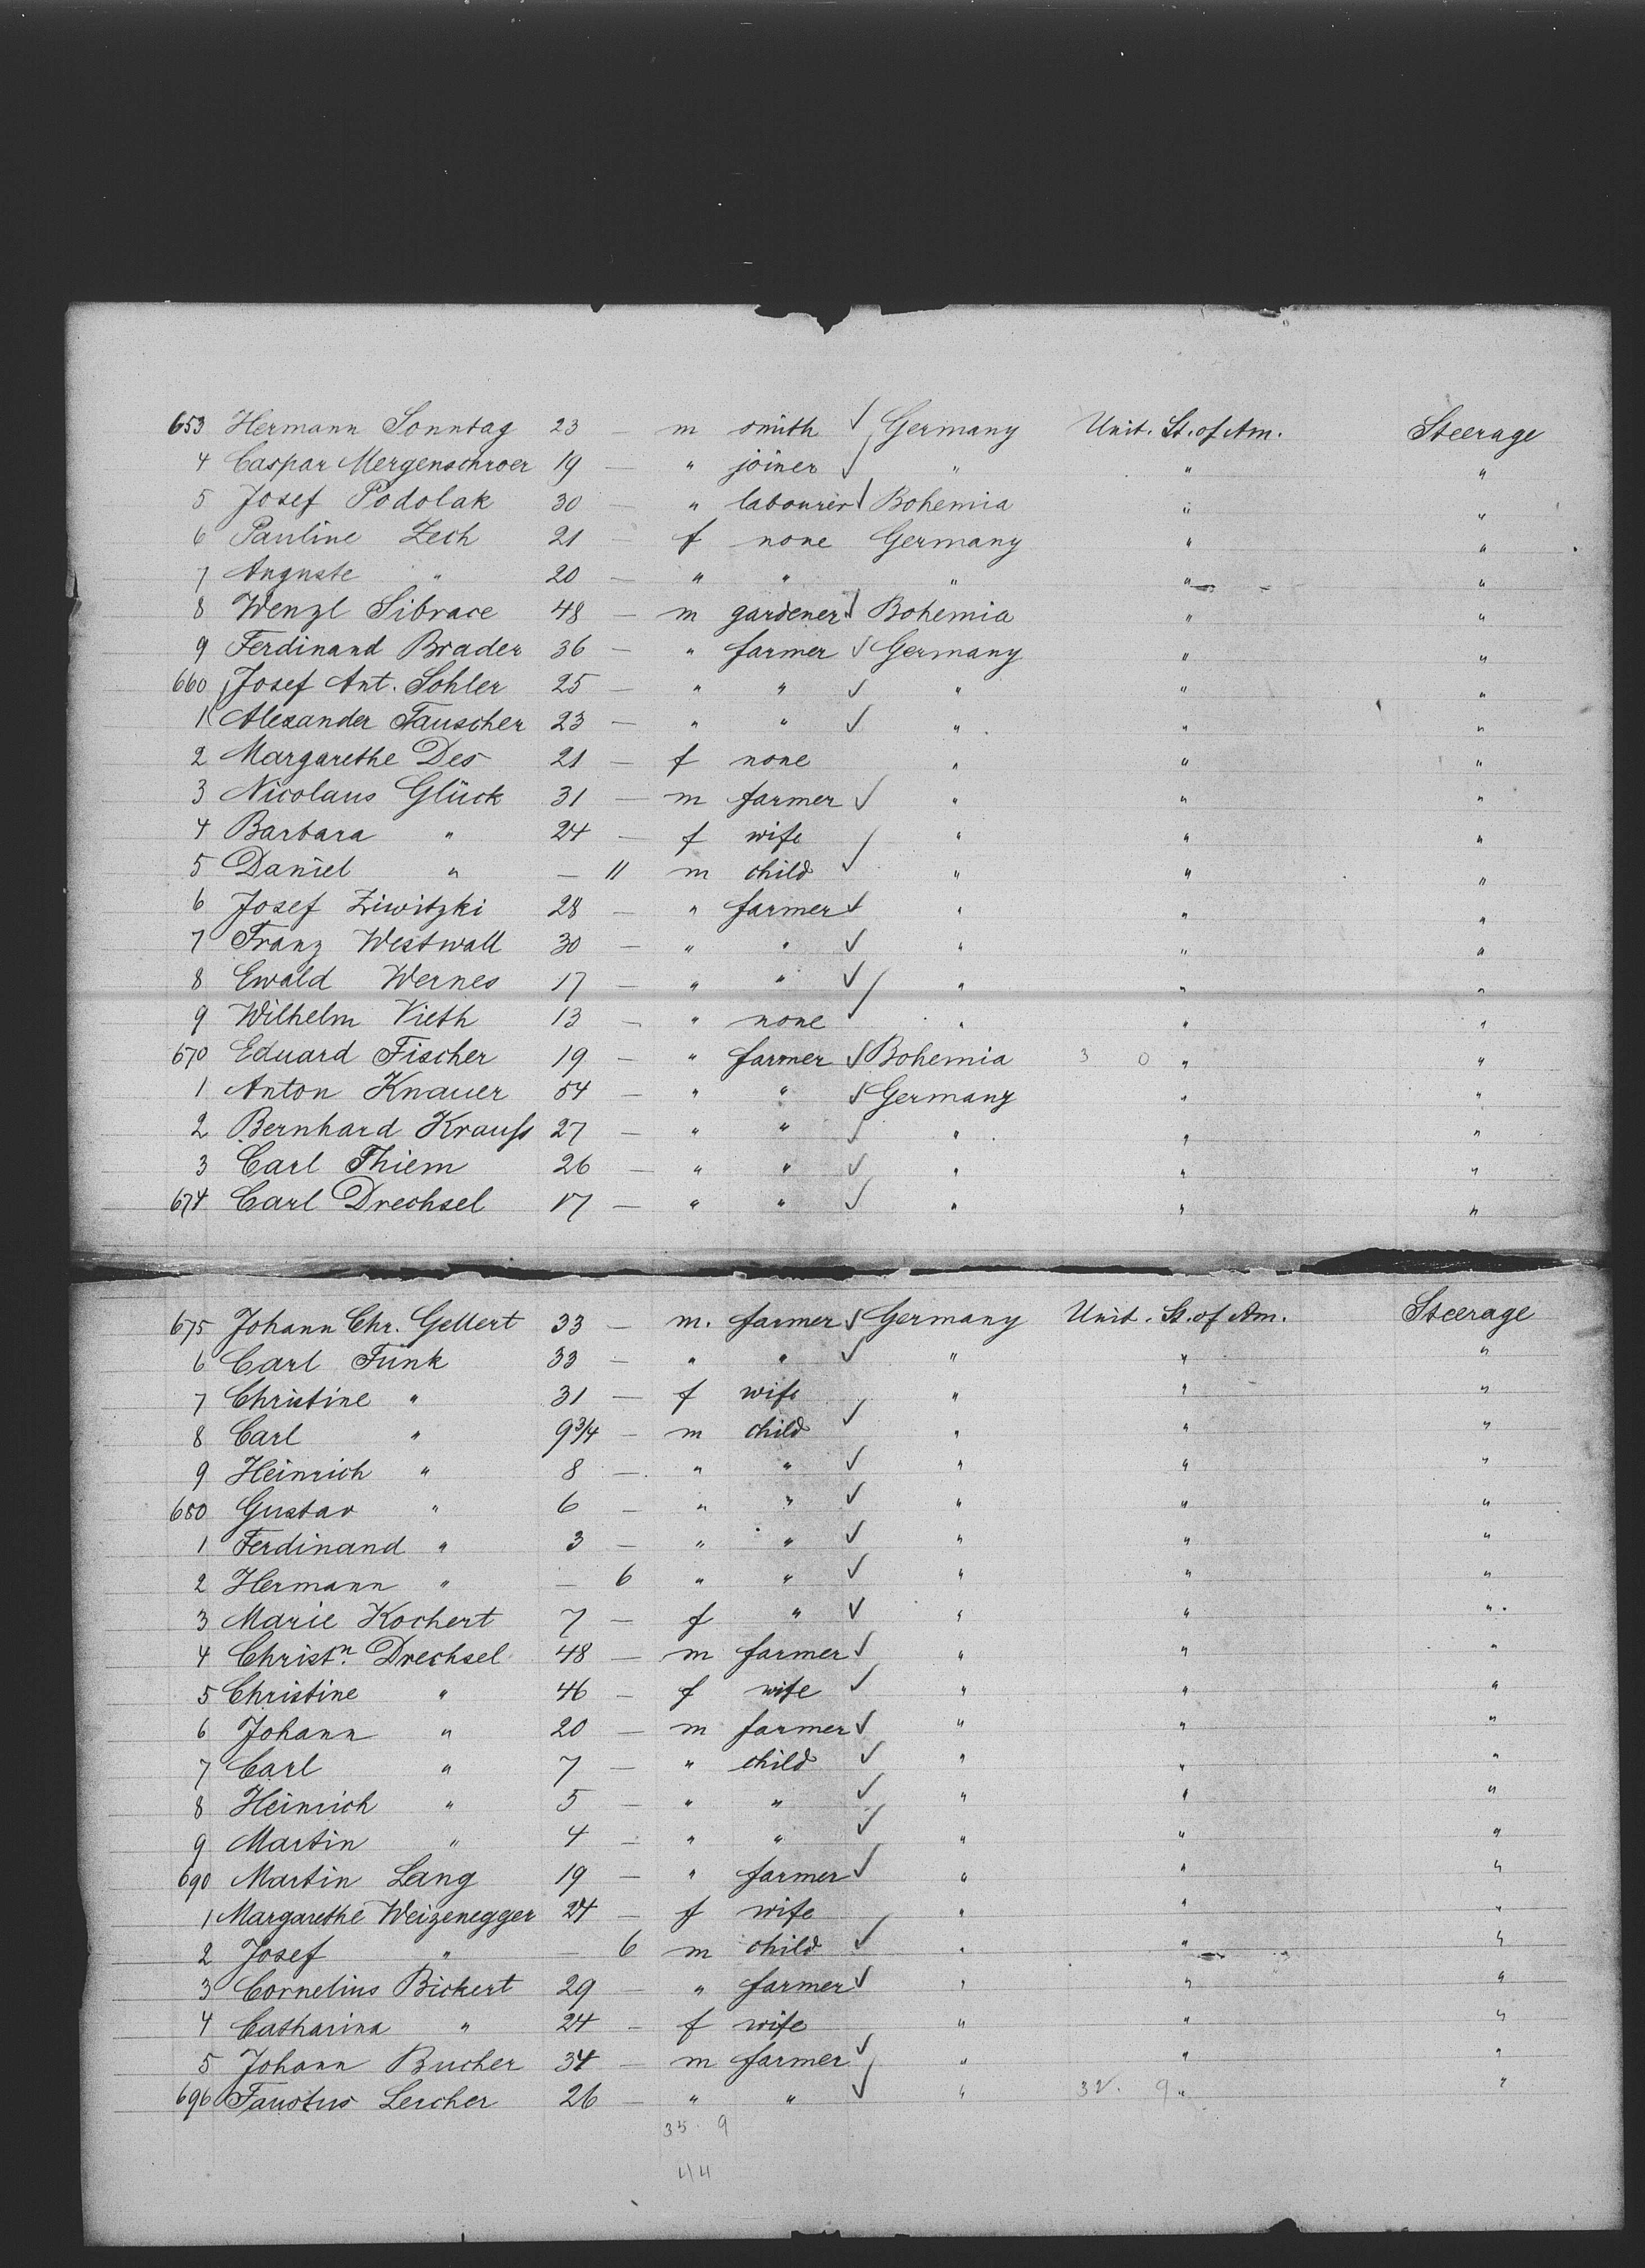 653 Hermann Sonntag 23 — m smith ✓ Germany Unit. St. of Am. Steerage
4 Caspar Mergenschroer 19 — " joiner ✓ " " "
5 Josef Podolak 30 — " labourer ✓ Bohemia " "
6 Pauline Zech 21 — f none Germany " "
7 Auguste " 20 — " " " " "
8 Wenzl Sibrace 48 — m gardener ✓ Bohemia " "
9 Ferdinand Brader 36 — " farmer ✓ Germany " "
660 Josef Ant. Sohler 25 — " " ✓ " " "
1 Alexander Tauscher 23 — " " ✓ " " "
2 Margarethe Des 21 — f none " " "
3 Nicolaus Glück 31 — m farmer ✓ " " "
4 Barbara " 24 — f wife " " "
5 Daniel " — 11 m child ✓ " " "
6 Josef Ziwitzki 28 — " farmer ✓ " " "
7 Franz Westwall 30 — " " ✓ " " "
8 Ewald Wernes 17 — " " ✓ " " "
9 Wilhelm Vieth 13 — " none ✓ " " "
670 Eduard Fischer 19 — " farmer ✓ Bohemia 3 0 " "
1 Anton Knauer 54 — " " ✓ Germany " "
2 Bernhard Krauß 27 — " " ✓ " " "
3 Carl Thiem 26 — " " ✓ " " "
674 Carl Drechsel 17 — " " ✓ " " "
675 Johann Chr. Gellert 33 — m. farmer ✓ Germany Unit. St. of Am. Steerage
6 Carl Funk 33 — " " ✓ " " "
7 Christine " 31 — f wife " " "
8 Carl " 9 3/4 — m child ✓ " " "
9 Heinrich " 8 — " " ✓ " " "
680 Gustav " 6 — " " ✓ " " "
1 Ferdinand " 3 — " " ✓ " " "
2 Hermann " — 6 " " ✓ " " "
3 Marie Kochert 7 — f " ✓ " " "
4 Christn. Drechsel 48 — m farmer ✓ " " "
5 Christine " 46 — f wife ✓ " " "
6 Johann " 20 — m farmer ✓ " " "
7 Carl " 7 — " child ✓ " " "
8 Heinrich " 5 — " " ✓ " " "
9 Martin " 4 — " " ✓ " " "
690 Martin Lang 19 — " farmer ✓ " " "
1 Margarethe Weizenegger 24 — f wife " " "
2 Josef " — 6 m child ✓ " " "
3 Cornelius Bickert 29 — " farmer ✓ " " "
4 Catharina " 24 — f wife " " "
5 Johann Bucher 34 — m farmer ✓ " " "
696 Faustus Lercher 26 — " " ✓ " 32. 9 " "
35. 9
44